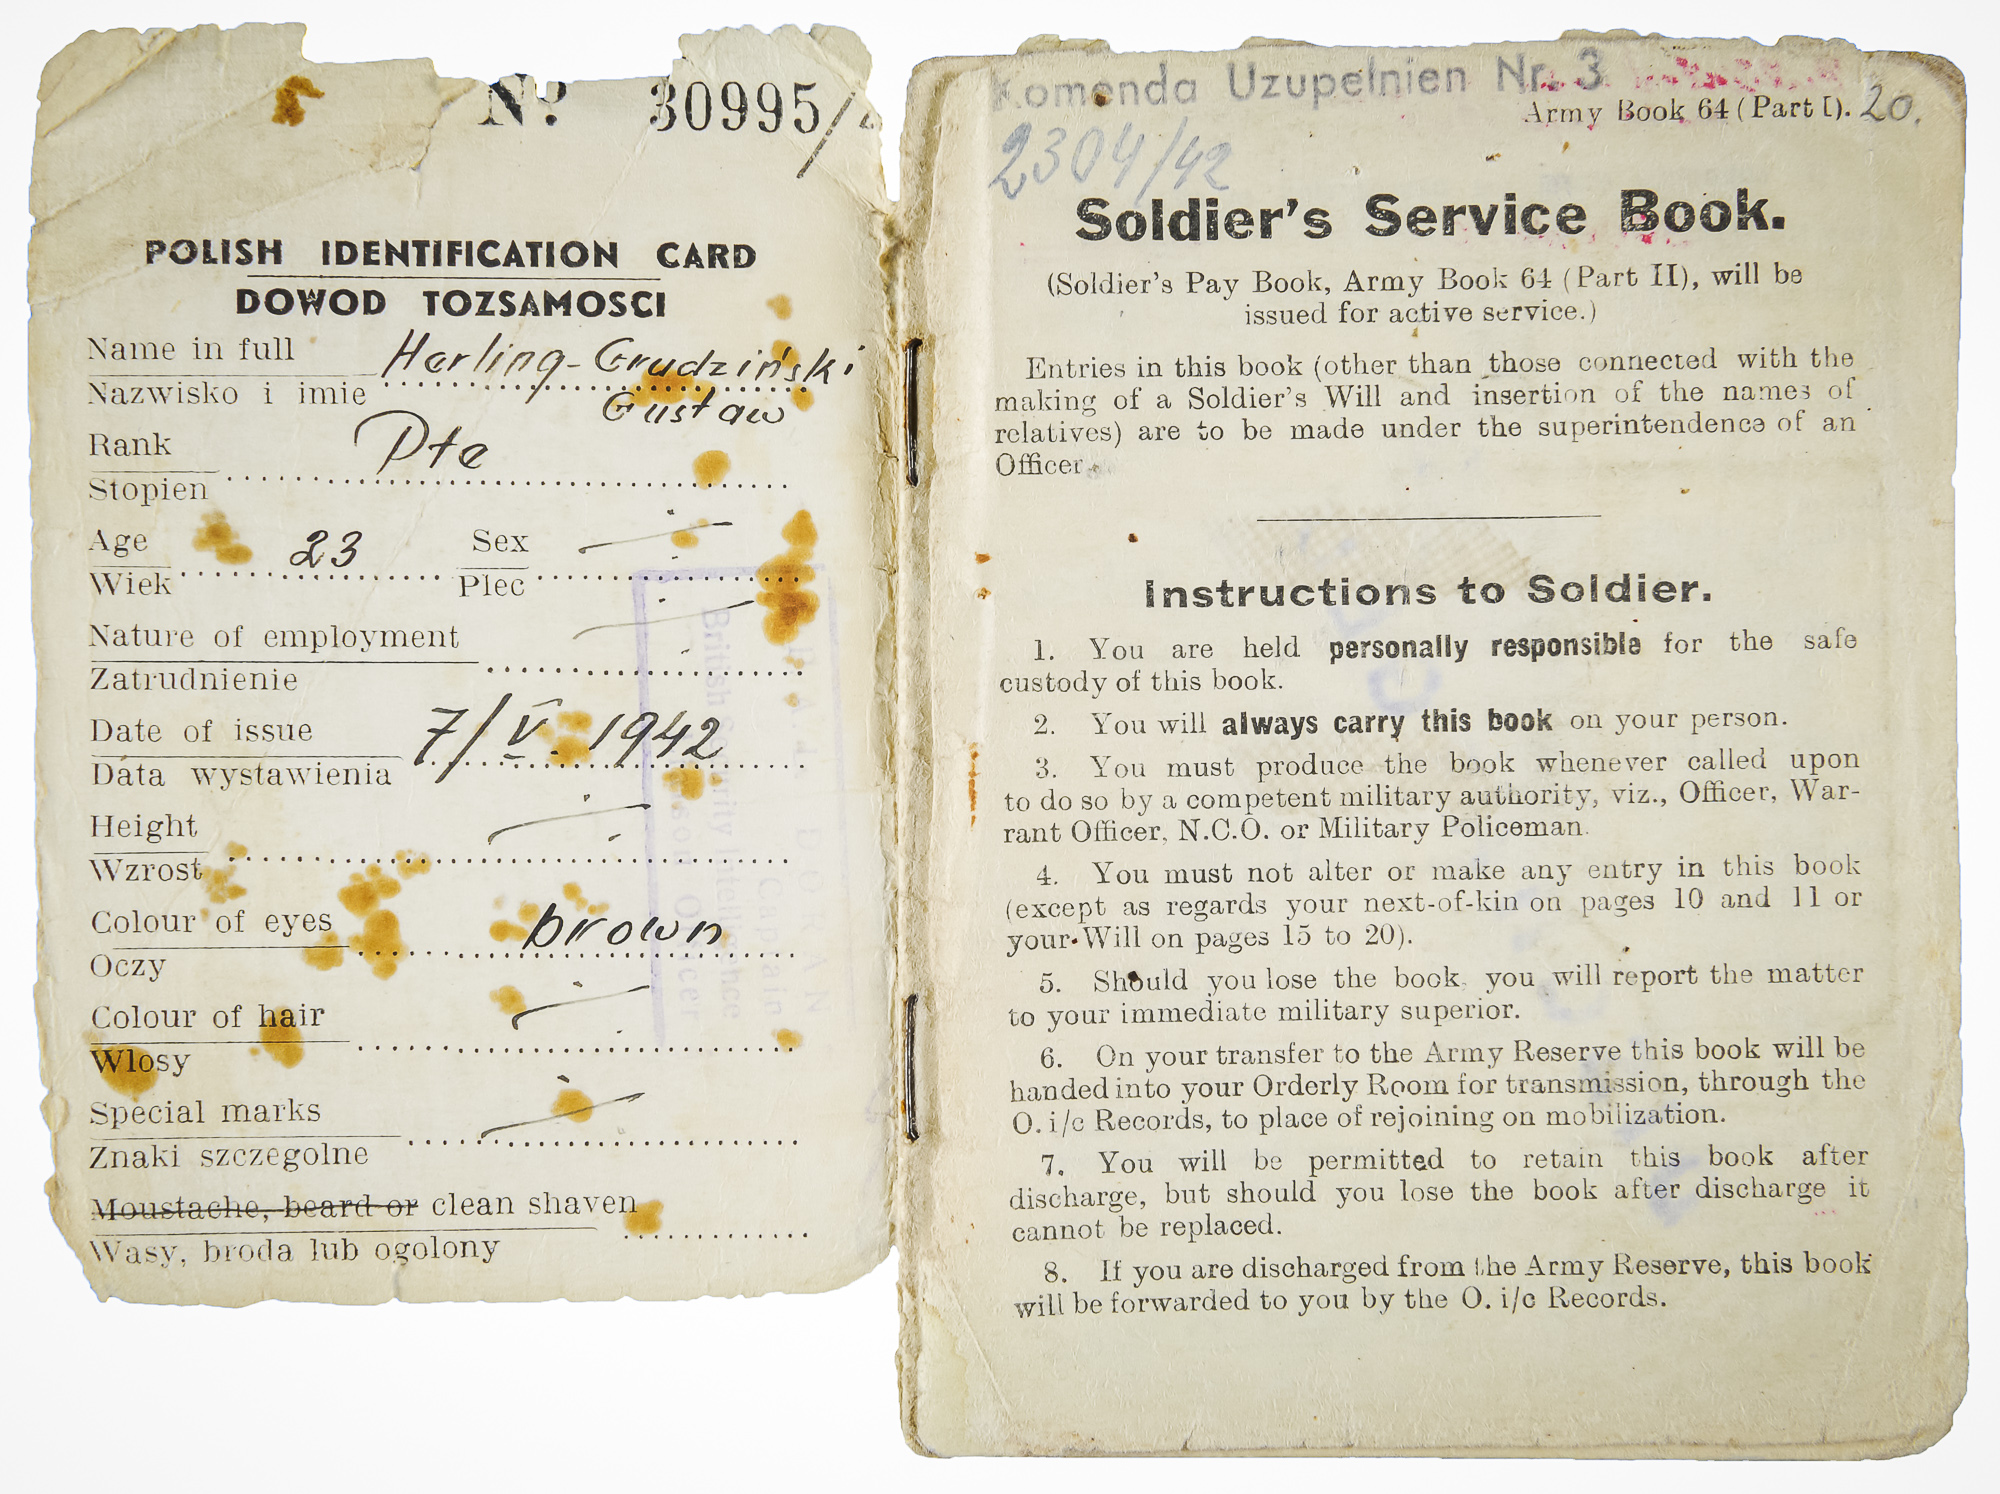 No. 30995/
POLISH IDENTIFICATION CARD
DOWOD TOZSAMOSCI
Name in full Herling-Grudziński
Nazwisko i imie Gustaw
Rank Pte
Stopien
Age 23 Sex
Wiek Plec
Nature of employment
Zatrudnienie
Date of issue 7/V. 1942
Data wystawienia
Height
Wzrost
Colour of eyes brown
Oczy
Colour of hair
Wlosy
Special marks
Znaki szczegolne
Moustache, beard or clean shaven
Wasy, broda lub ogolony
Captain
British Security Intelligence
Officer
Komenda Uzupełnien Nr. 3
Army Book 64 (Part I). 20.
2304/42
Soldier's Service Book.
(Soldier's Pay Book, Army Book 64 (Part II), will be
issued for active service.)
Entries in this book (other than those connected with the
making of a Soldier's Will and insertion of the names of
relatives) are to be made under the superintendence of an
Officer.
Instructions to Soldier.
1. You are held personally responsible for the safe
custody of this book.
2. You will always carry this book on your person.
3. You must produce the book whenever called upon
to do so by a competent military authority, viz., Officer, War-
rant Officer, N.C.O. or Military Policeman.
4. You must not alter or make any entry in this book
(except as regards your next-of-kin on pages 10 and 11 or
your Will on pages 15 to 20).
5. Should you lose the book, you will report the matter
to your immediate military superior.
6. On your transfer to the Army Reserve this book will be
handed into your Orderly Room for transmission, through the
O. i/c Records, to place of rejoining on mobilization.
7. You will be permitted to retain this book after
discharge, but should you lose the book after discharge it
cannot be replaced.
8. If you are discharged from the Army Reserve, this book
will be forwarded to you by the O. i/c Records.